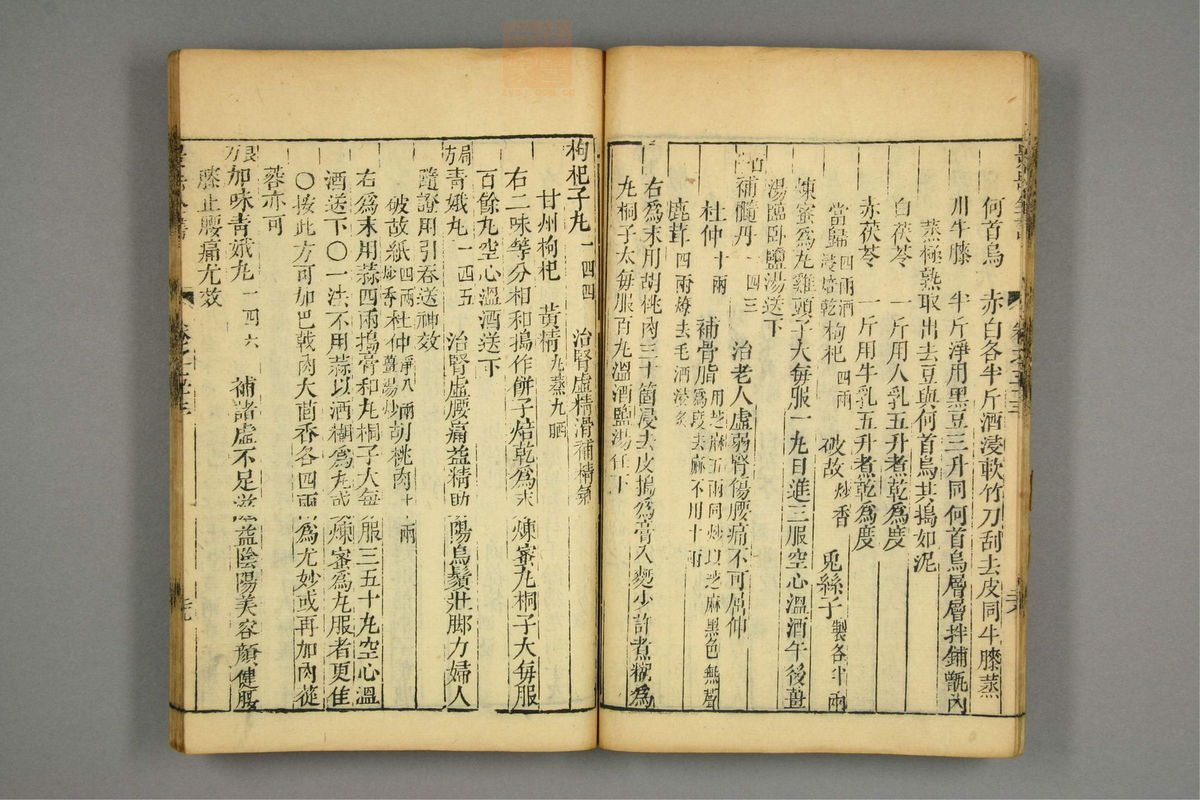 何首烏 赤白各半斤酒浸軟竹刀刮去皮同牛膝蒸
川牛膝 半斤淨用黑豆三升同何首烏層層拌鋪甑內
蒸極熟取出去豆與何首烏共搗如泥
白茯苓 一斤用人乳五升煮乾為度
赤茯苓 一斤用牛乳五升煮乾為度
當歸 四兩酒浸焙乾 枸杞 四兩 破故 炒香 兎絲子 製各半兩
煉蜜為丸雞頭子大每服一丸日進三服空心溫酒午後薑
湯臨卧鹽湯送下
補髓丹 一四三 治老人虛弱腎傷腰痛不可屈伸
杜仲 十兩 補骨脂 用芝麻五兩同炒以芝麻黑色無聲為度去麻不用十兩
鹿茸 四兩燎去毛酒浸炙
右為末用胡桃肉三十箇浸去皮搗為膏入麵少許煮糊為
丸桐子大每服百丸溫酒鹽湯任下
枸杞子丸 一四四 治腎虛精滑補精氣
甘州枸杞 黃精 九蒸九晒
右二味等分相和搗作餅子焙乾為末煉蜜丸桐子大每服
百餘丸空心溫酒送下
局方 青娥丸 一四五 治腎虛腰痛益精助陽烏鬚壯脚力婦人
隨證用引吞送神效
破故紙 四兩炒香 杜仲 淨八兩薑湯炒 胡桃肉 十兩
右為末用蒜四兩搗膏和丸桐子大每服三五十丸空心溫
酒送下〇一法不用蒜以酒糊為丸或煉蜜為丸服者更佳
〇按此方可加巴戟肉大茴香各四兩為尤妙或再加肉蓯
蓉亦可
良方 加味青娥丸 一四六 補諸虛不足滋益陰陽美容顏健腰
膝止腰痛尤效